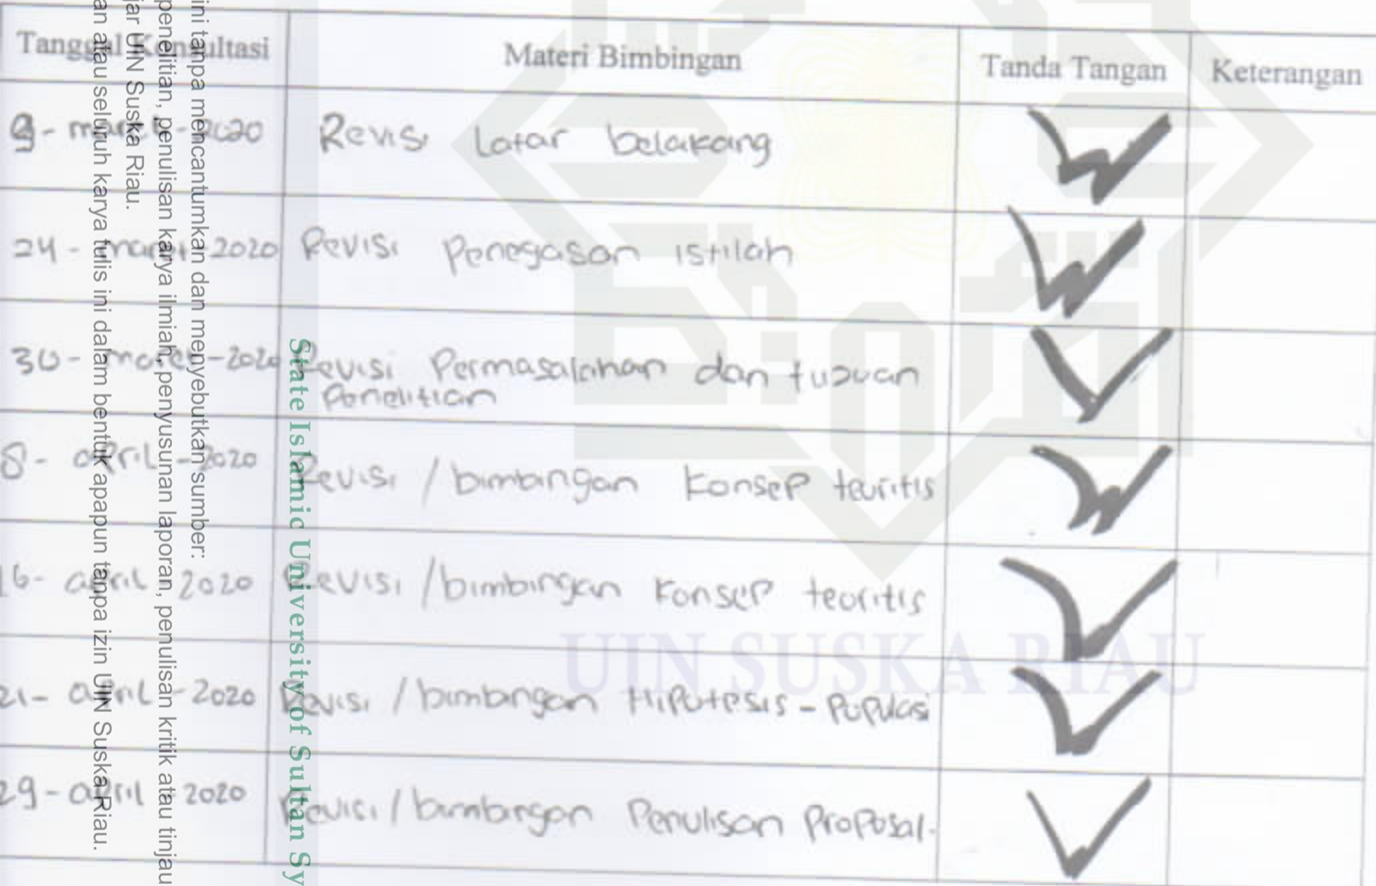 Tanggal Konsultasi Materi Bimbingan Tanda Tangan Keterangan
9 - maret - 2020 Revisi latar belakang
24 - maret - 2020 Revisi Penegasan istilah
30 - maret - 2020 Revisi Permasalahan dan tujuan
Penelitian
8 - april - 2020 Revisi / bimbingan Konsep teoritis
16 - april 2020 Revisi / bimbingan Konsep teoritis
21 - april - 2020 Revisi / bimbingan Hipotesis - Populasi
29 - april - 2020 Revisi / bimbingan Penulisan Proposal.
UIN SUSKA RIAU
State Islamic University of Sultan Sy
ini tanpa mencantumkan dan menyebutkan sumber:
penelitian, penulisan karya ilmiah, penyusunan laporan, penulisan kritik atau tinjau
jar UIN Suska Riau.
an atau seluruh karya tulis ini dalam bentuk apapun tanpa izin UIN Suska Riau.